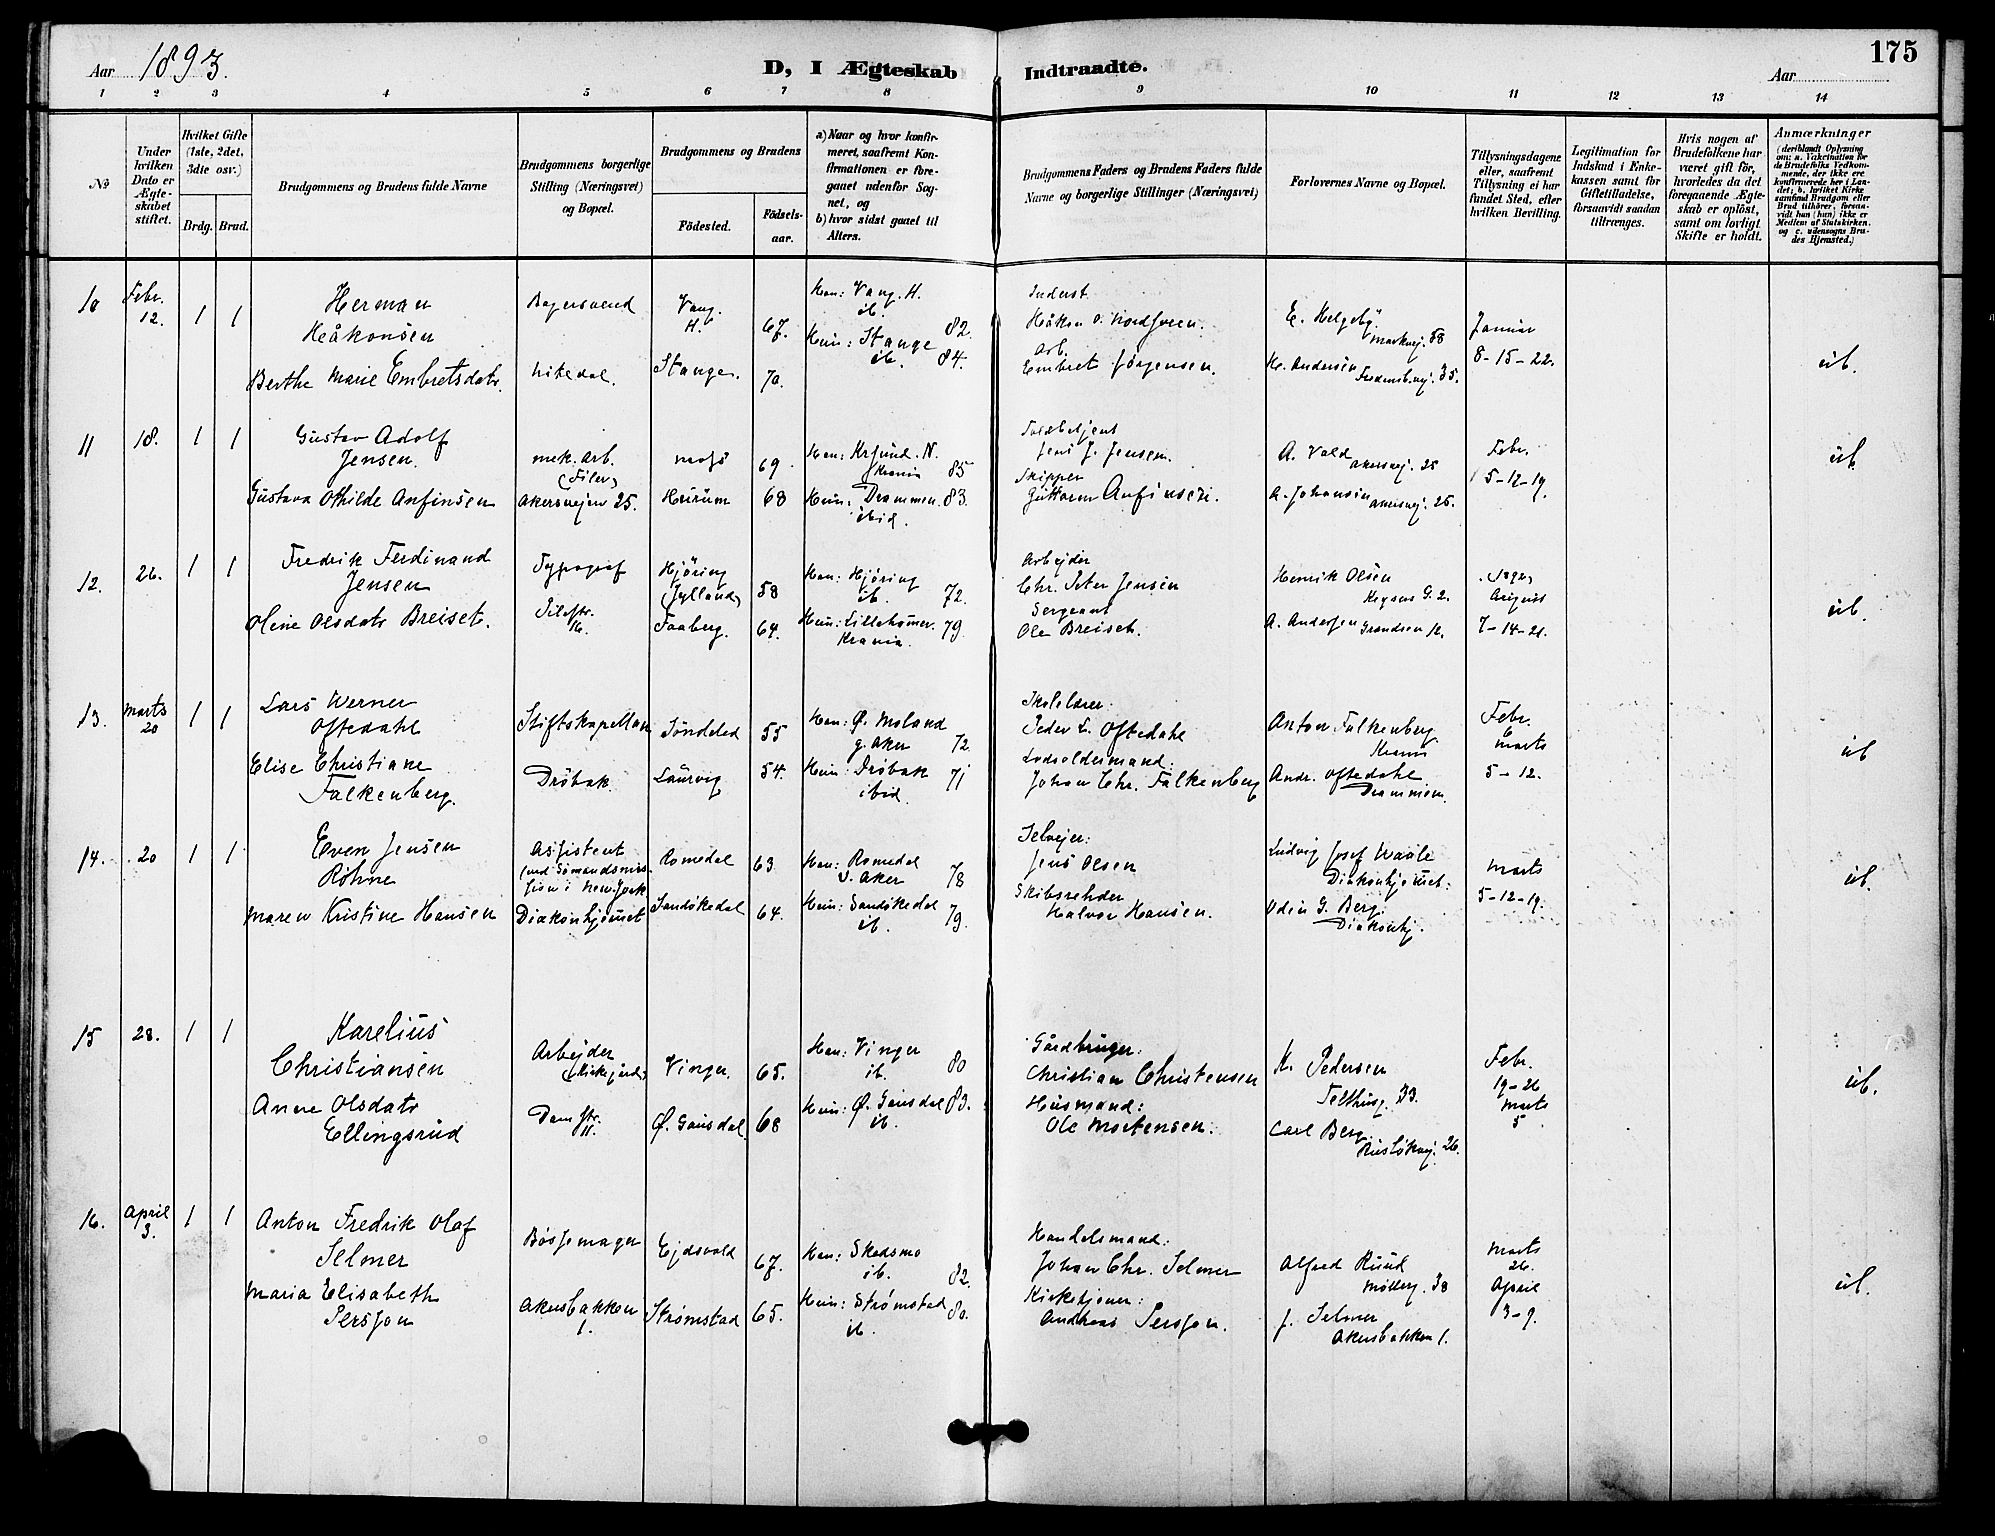 175
Aar 1893.
D, I Ægteskab Indtraadte.
Aar
1 2 3 4 5 6 7 8 9 10 11 12 13 14
No
Under hvilken Dato er Ægteskabet stiftet.
Hvilket Gifte (1ste, 2det, 3die osv.)
Brdg. Brud.
Brudgommens og Brudens fulde Navne
Brudgommens borgerlige Stilling (Næringsvei) og Bopæl.
Brudgommens og Brudens
Födested.
Födselsaar.
a) Naar og hvor konfirmeret, saafremt Konfirmationen er foregaaet udenfor Sognet, og
b) hvor sidst gaaet til Alters.
Brudgommens Faders og Brudens Faders fulde Navne og borgerlige Stillinger (Næringsvei)
Forlovernes Navne og Bopæl.
Tillysningsdagene eller, saafremt Tillysning ei har fundet Sted, efter hvilken Bevilling.
Legitimation for Indskud i Enkekassen samt for Giftetilladelse, forsaavidt saadan tiltrænges.
Hvis nogen af Brudefolkene har været gift för, hvorledes da det foregaaende Ægteskab er oplöst, samt om lovligt Skifte er holdt.
Anmærkninger
(deriblandt Oplysning om: a. Vakcination for de Brudefolks Vedkommende, der ikke ere konfirmerede her i Landet; b. hvilket Kirkesamfund Brudgom eller Brud tilhörer, forsaavidt han (hun) ikke er Medlem af Statskirken, og c. udensogns Brudes Hjemsted.)
10
Febr. 12.
1 1
Herman
Håkonsen
Berthe Marie Embretsdatr.
Bagersvend
Vang. H.
67.
Stange.
70.
Han: Vang. H.
ib. 82.
Hun: Stange
ib. 84.
Inderst.
Håkon O. Nordsveen.
Arb.
Embret Jørgensen.
E. Helgeby.
Markvej. 58
H. Andersen
Fredensbvej. 35.
Januar
8-15-22.
ub.
11
18.
1 1
Gustav Adolf
Jensen.
Gustava Othilde Anfinsen
mek. Arb.
(Filer)
Akersvejen 25.
69
Hurum
68
Han: Krsund. N.
Krania 85
Hun: Drammen. 83.
ibid.
Toldbetjent
Jens J. Jensen.
Skipper
Guttorm Anfinsen.
A. Vold
Akersvej. 25
A. Johansen
Akersvej. 25.
Febr.
5-12-19.
ub.
12.
26.
1 1
Fredrik Ferdinand
Jensen
Oline Olsdatr Breiset.
Typograf
Pilestr.
16.
Hjøring
(Jylland)
58
Faaberg.
64.
Han: Hjøring
ib. 72.
Hun: Lillehamer. 79.
Krania.
Arbejder
Chr. Peter Jensen
Sergeant
Ole Breiset.
Henrik Olsen
Keysers G. 2.
A. Andersen
Grændsen 12.
August
7-14-21.
ub.
13.
Marts
20
1 1
Lars Werner
Oftedahl
Elise Christiane
Falkenberg.
Stiftskapellan
Drøbak.
Søndeled
55
Laurvig
54.
Han: Ø. Moland
g. Aker 72.
Hun: Drøbak 71
ibid.
Skolelærer:
Peder L. Oftedahl
Lodsoldermand:
Johan Chr. Falkenberg
Anton Falkenberg.
Krania
Andr. Oftedahl
Drammen.
Febr.
Marts
5-12.
ub
14.
20
1 1
Even Jensen
Røhne
Maren Kristine Hansen
Assistent
(ved Sømandsmission i New York)
Diakonhjemmet
Romedal
63
Sandøkedal
64.
Han: Romedal
V. Aker 78
Hun: Sandøkedal 79
ib.
Selvejer:
Jens Olsen
Skibsrehder
Halvor Hansen.
Ludvig Josef Waale
Diakonhjemmet:
Odin G. Berg.
Diakonhj.
Marts
5-12-19.
ub.
15
28.
1 1
Karelius
Christiansen
Anne Olsdatr
Ellingsrud
Arbejder
(Kirkegård)
Damstr.
11.
Vinger.
65.
Ø. Gausdal.
68
Han: Vinger
ib. 80
Hun: Ø. Gausdal 83.
ib.
Gårdbruger:
Christian Christensen
Husmand:
Ole Mortensen.
K. Pedersen
Telthusg. 33.
Carl Berg.
Ruseløkvej. 26.
Febr.
19-26
Marts
5
ub.
16.
April
3.
1 1
Anton Fredrik Olaf
Selmer
Maria Elisabeth
Persson
Bøssemager
Akersbakken
1.
Ejdsvold
67.
Strømstad
65.
Han: Skedsmo
ib. 82.
Hun: Strømstad 80.
ib.
Handelsmand:
Johan Chr. Selmer
Kirketjener:
Andreas Persson.
Alfred Ruud
Møllerg. 38
J. Selmer
Akersbakken 1.
Marts
26.
April
3-9.
ub.